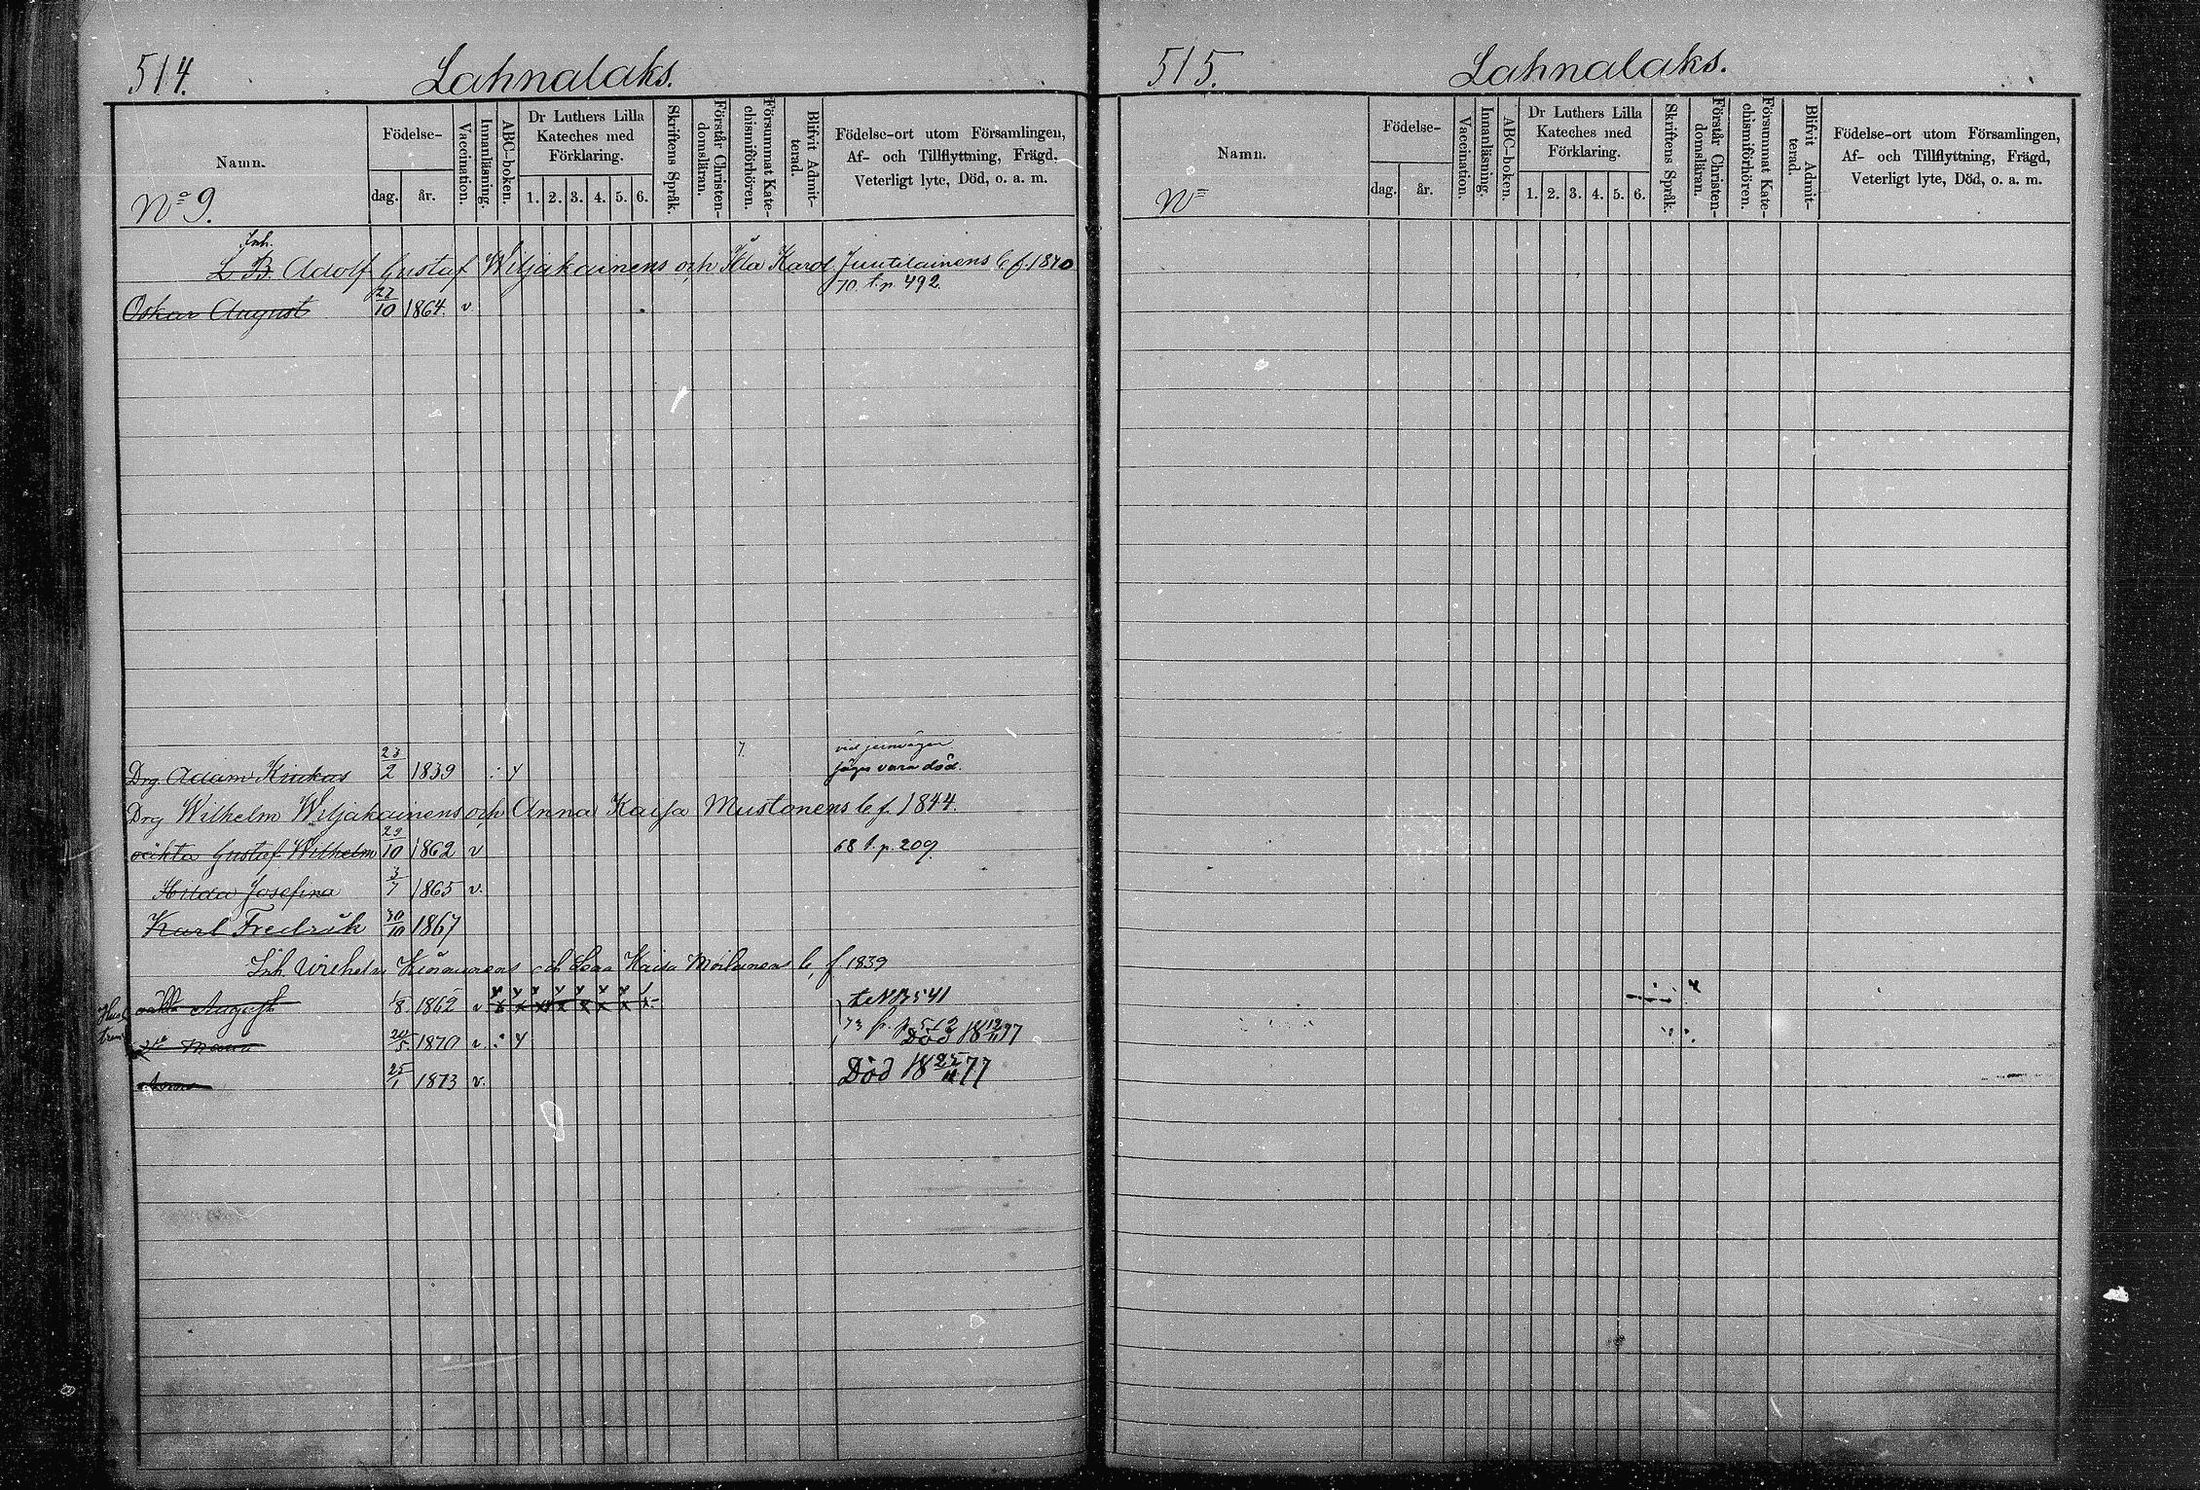 514. Lahnalaks.
Namn.
Födelse-
dag. år.
Vaccination.
Innanläsning.
ABC-boken.
Dr Luthers Lilla
Kateches med
Förklaring.
1. 2. 3. 4. 5. 6.
Skriftens Språk.
Förstår Christen-
domsläran.
Försummat Kate-
chismiförhören.
Blifvit Admit-
terad.
Födelse-ort utom Församlingen,
Af- och Tillflyttning, Frägd,
Veterligt lyte, Död, o. a. m.
No 9.
Inh.
L. B. Adolf Gustaf Wiljakainens och Karol. Juutilainens b. f. 1840
70. t. p. 492.
Oskar August 27/10 1864. v
7. vid jernvägen
Drg. Adam Kiukas 23/2 1839 säges vara död.
Drg Wilhelm Wiljakainens och Anna Kaisa Mustonens b. f. 1844.
oäkta Gustaf Wilhelm 29/10 1862 v 68 t. p. 209.
Hilda Josefina 3/7 1865 v.
Karl Fredrik 30/10 1867
Inh. Wilhelm och Kaisa Moilanens b. f. 1839
oäkta August 1/8 1862 v 541
1870 v. 73 Död 18 77
25/1 1873 v. Död 18 77
515. Lahnalaks.
Namn.
Födelse-
dag. år.
Vaccination.
Innanläsning.
ABC-boken.
Dr Luthers Lilla
Kateches med
Förklaring.
1. 2. 3. 4. 5. 6.
Skriftens Språk.
Förstår Christen-
domsläran.
Försummat Kate-
chismiförhören.
Blifvit Admit-
terad.
Födelse-ort utom Församlingen,
Af- och Tillflyttning, Frägd,
Veterligt lyte, Död, o. a. m.
No